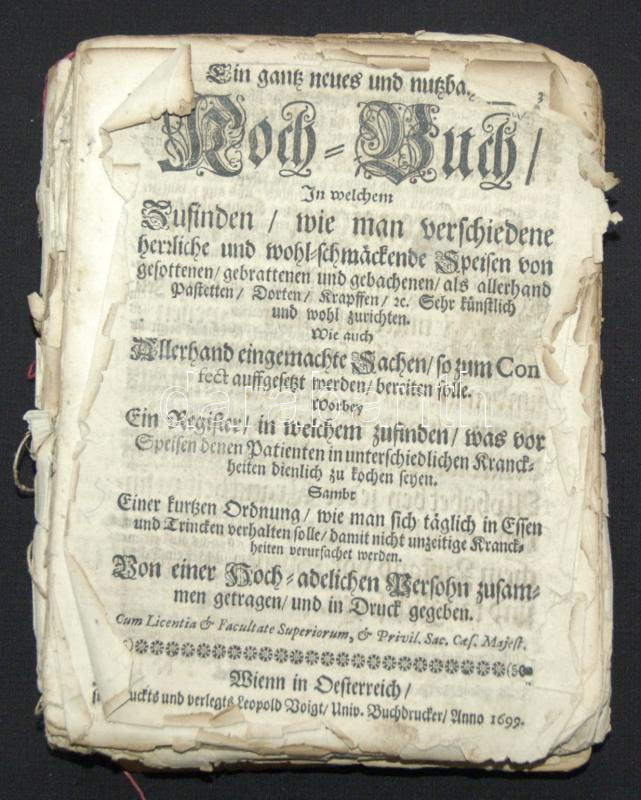 Ein gantz neues und nutzba
Koch-Buch/
In welchem
Zufinden / wie man verschiedene
herrliche und wohl-schmäckende Speisen von
gesottenen/ gebrattenen und gebachenen/ als allerhand
Pastetten/ Dorten/ Krapffen/ ꝛc. Sehr künstlich
und wohl zurichten.
Wie auch
Allerhand eingemachte Sachen/ so zum Con
fect auffgesetzt werden/ bereiten solle.
Worbey
Ein Register/ in welchem zufinden/ was vor
Speisen denen Patienten in unterschiedlichen Kranck-
heiten dienlich zu kochen seyen.
Sambt
Einer kurtzen Ordnung/ wie man sich täglich in Essen
und Trincken verhalten solle/ damit nicht unzeitige Kranck-
heiten verursachet werden.
Von einer Hoch-adelichen Persohn zusam-
men getragen/ und in Druck gegeben.
Cum Licentia & Facultate Superiorum, & Privil. Sac. Cæs. Majest.
Wienn in Oesterreich/
uckts und verlegts Leopold Voigt/ Univ. Buchdrucker/ Anno 1699.